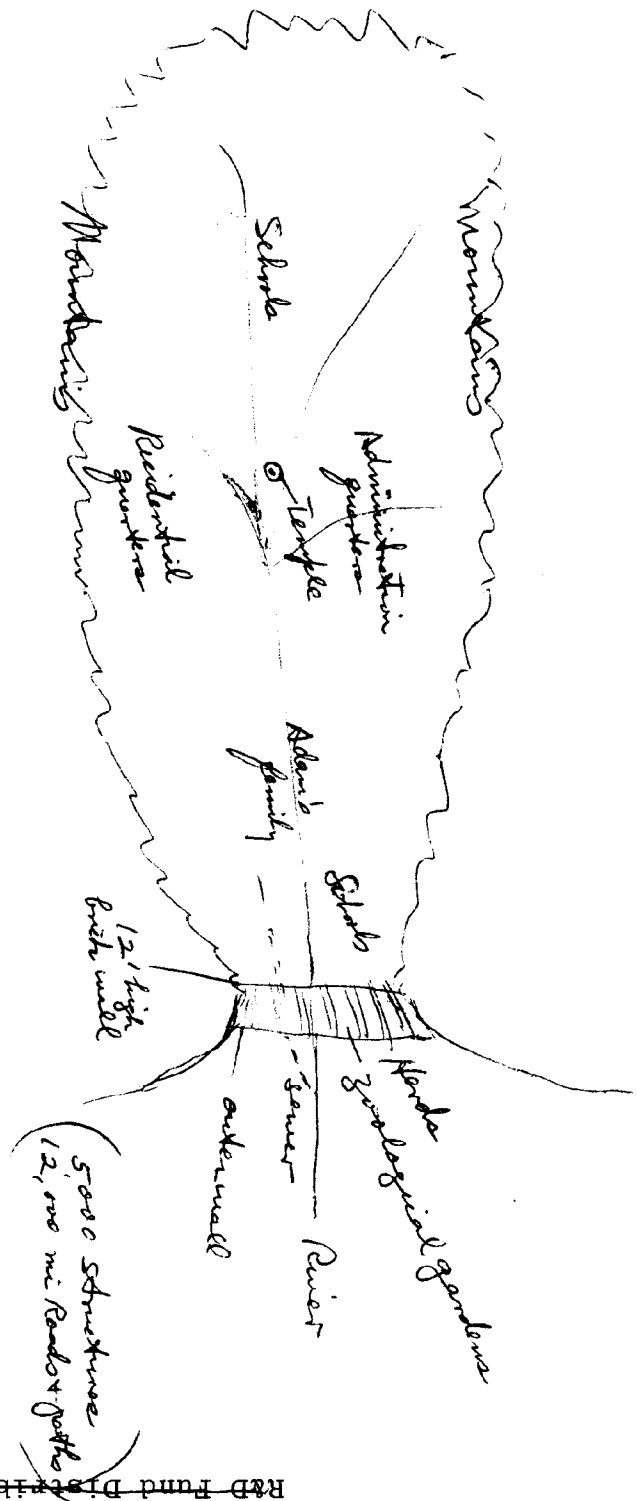 Mountains
Mountains
Schools
Administration
quarters
Temple
Residential
quarters
Adam's
family
Schools
12' high
brick wall
Herds
Zoological gardens
River
sewer
outer wall
5000 structures
12,000 mi Roads & paths
R&D Fund Distrib